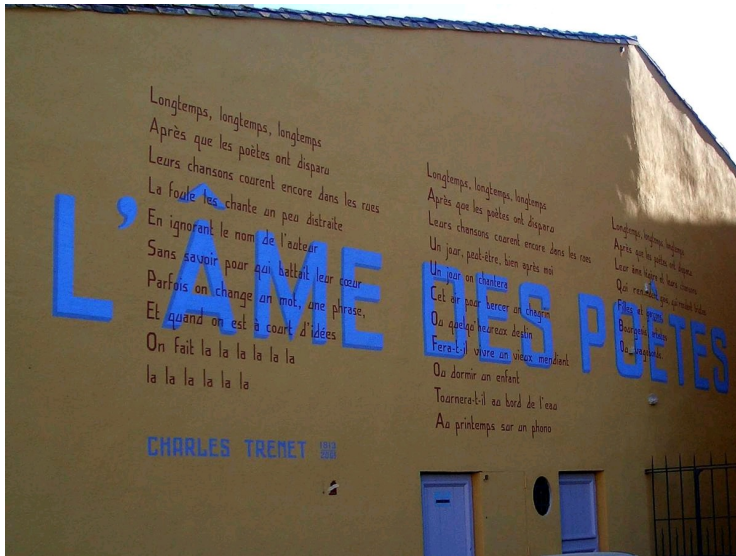 L'ÂME DES POÈTES
Longtemps, longtemps, longtemps
Après que les poètes ont disparu
Leurs chansons courent encore dans les rues
La foule les chante un peu distraite
En ignorant le nom de l'auteur
Sans savoir pour qui battait leur cœur
Parfois on change un mot, une phrase,
Et quand on est à court d'idées
On fait la la la la la la
la la la la la la
Longtemps, longtemps, longtemps
Après que les poètes ont disparu
Leurs chansons courent encore dans les rues
Un jour, peut-être, bien après moi
Un jour on chantera
Cet air pour bercer un chagrin
Ou quelqu'heureux destin
Fera-t-il vivre un vieux mendiant
Ou dormir un enfant
Tournera-t-il au bord de l'eau
Au printemps sur un phono
Longtemps, longtemps, longtemps
Après que les poètes ont disparu
Leur âme légère et leurs chansons
Qui rendent gais, qui rendent tristes
Filles et garçons
Bourgeois, artistes
Ou vagabonds.
CHARLES TRENET